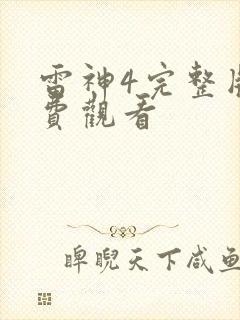 雷神4完整
費觀看
睥睨天下咸鱼